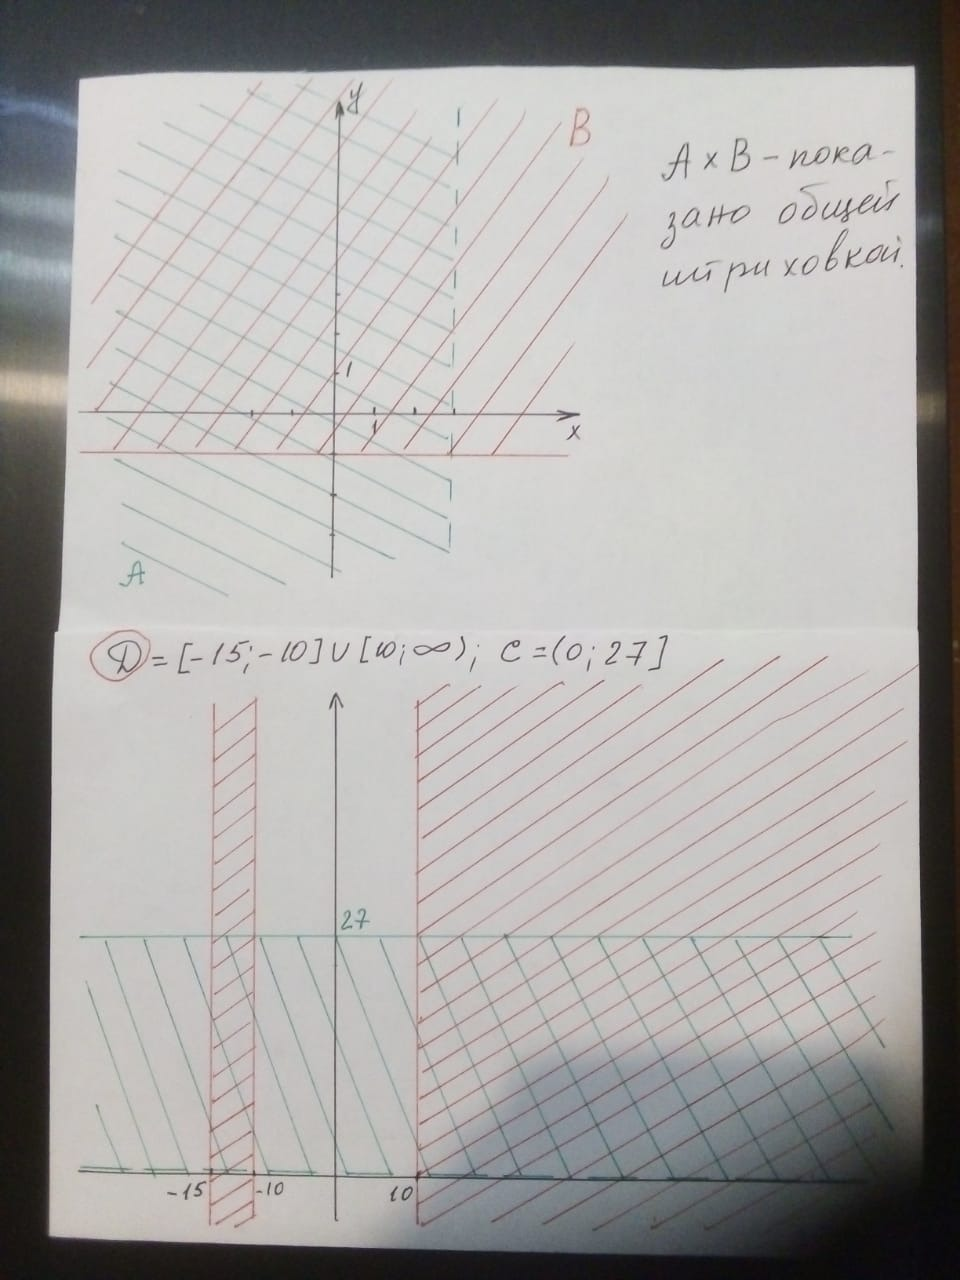 y
B
A × B - пока-
зано общей
штриховкой.
1
1
x
A
D = [-15; -10] ∪ [10; ∞); C = (0; 27]
27
-15 -10 10